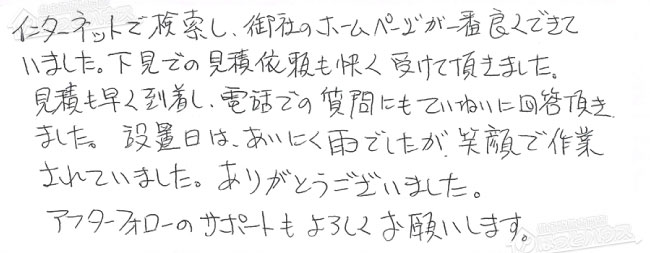 インターネットで検索し、御社のホームページが一番良くできて
いました。下見での見積依頼も快く受けて頂きました。
見積も早く到着し、電話での質問にもていねいに回答頂き
ました。設置日は、あいにく雨でしたが、笑顔で作業
されていました。ありがとうございました。
アフターフォローのサポートもよろしくお願いします。